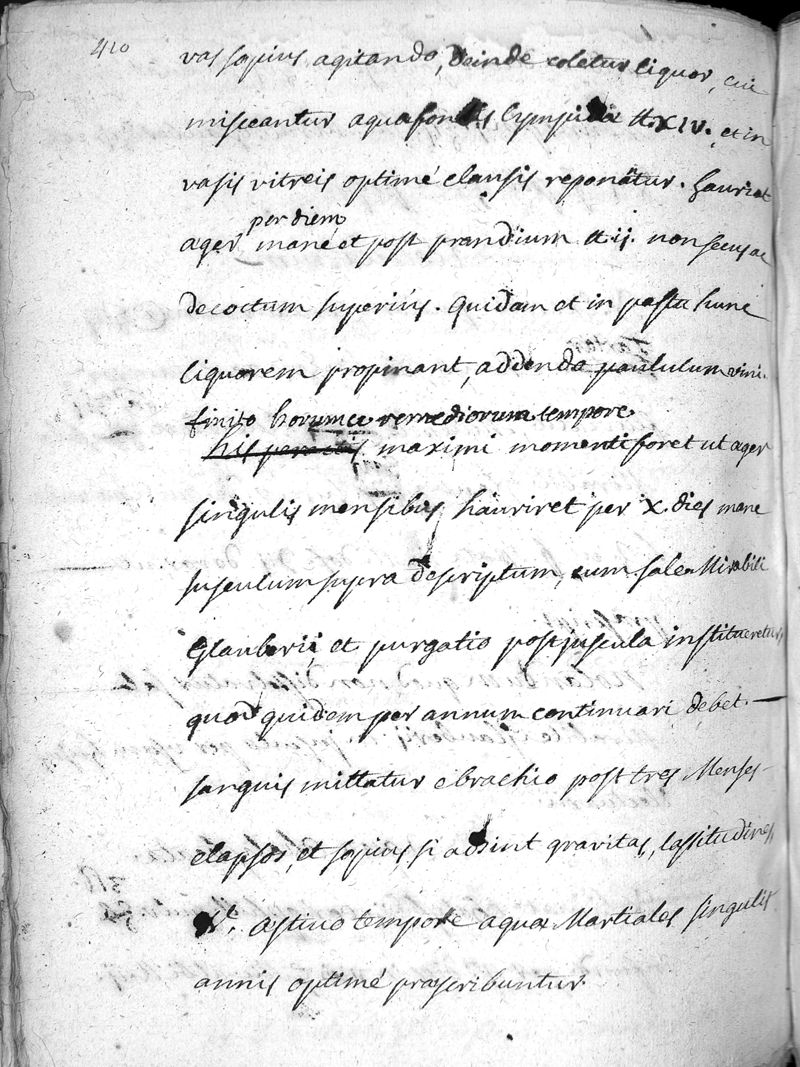 410
vas sæpius agitando, deinde coletur liquor, cui
misceantur aquæ fontis lympidæ ℔. XIV. et in
vasis vitreis optimé clausis reponatur. hauriat
per diem
æger mané et post prandium ℔. ij. non secus ac
decoctum superiùs. quidam et in pastu hunc
liquorem propinant, addendo paululum vini.
finito horumce remediorum tempore
his peractis maximi momenti foret ut æger
singulis mensibus hauriret per X. dies mane
jusculum supra descriptum, cum sale Mirabili
Glauberii, et purgatio post juscula institueretur
quod quidem per annum continuari debet. —
sanguis mittatur e brachio post tres Menses
elapsos, et sæpius, si adsint gravitas, lassitudines
&c. æstivo tempore aquæ Martiales singulis
annis optimé præscribuntur.